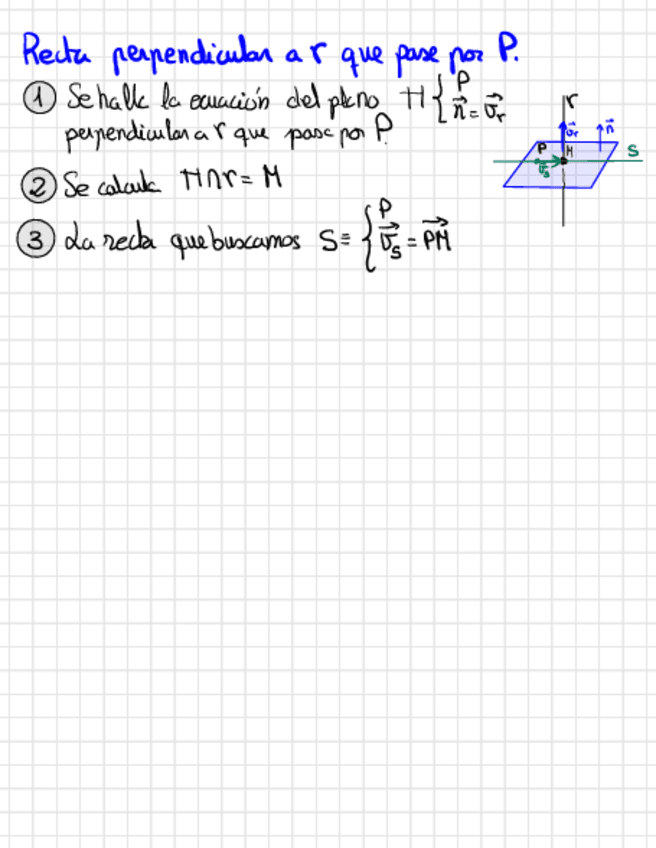 Recta perpendicular a r que pase por P.
1 Se halla la ecuación del plano π { P n⃗ = v⃗r
perpendicular a r que pase por P.
2 Se calcula π∩r = M
3 La recta que buscamos S ≡ { P v⃗s = PM⃗
r
v⃗r n⃗
P M S
v⃗s